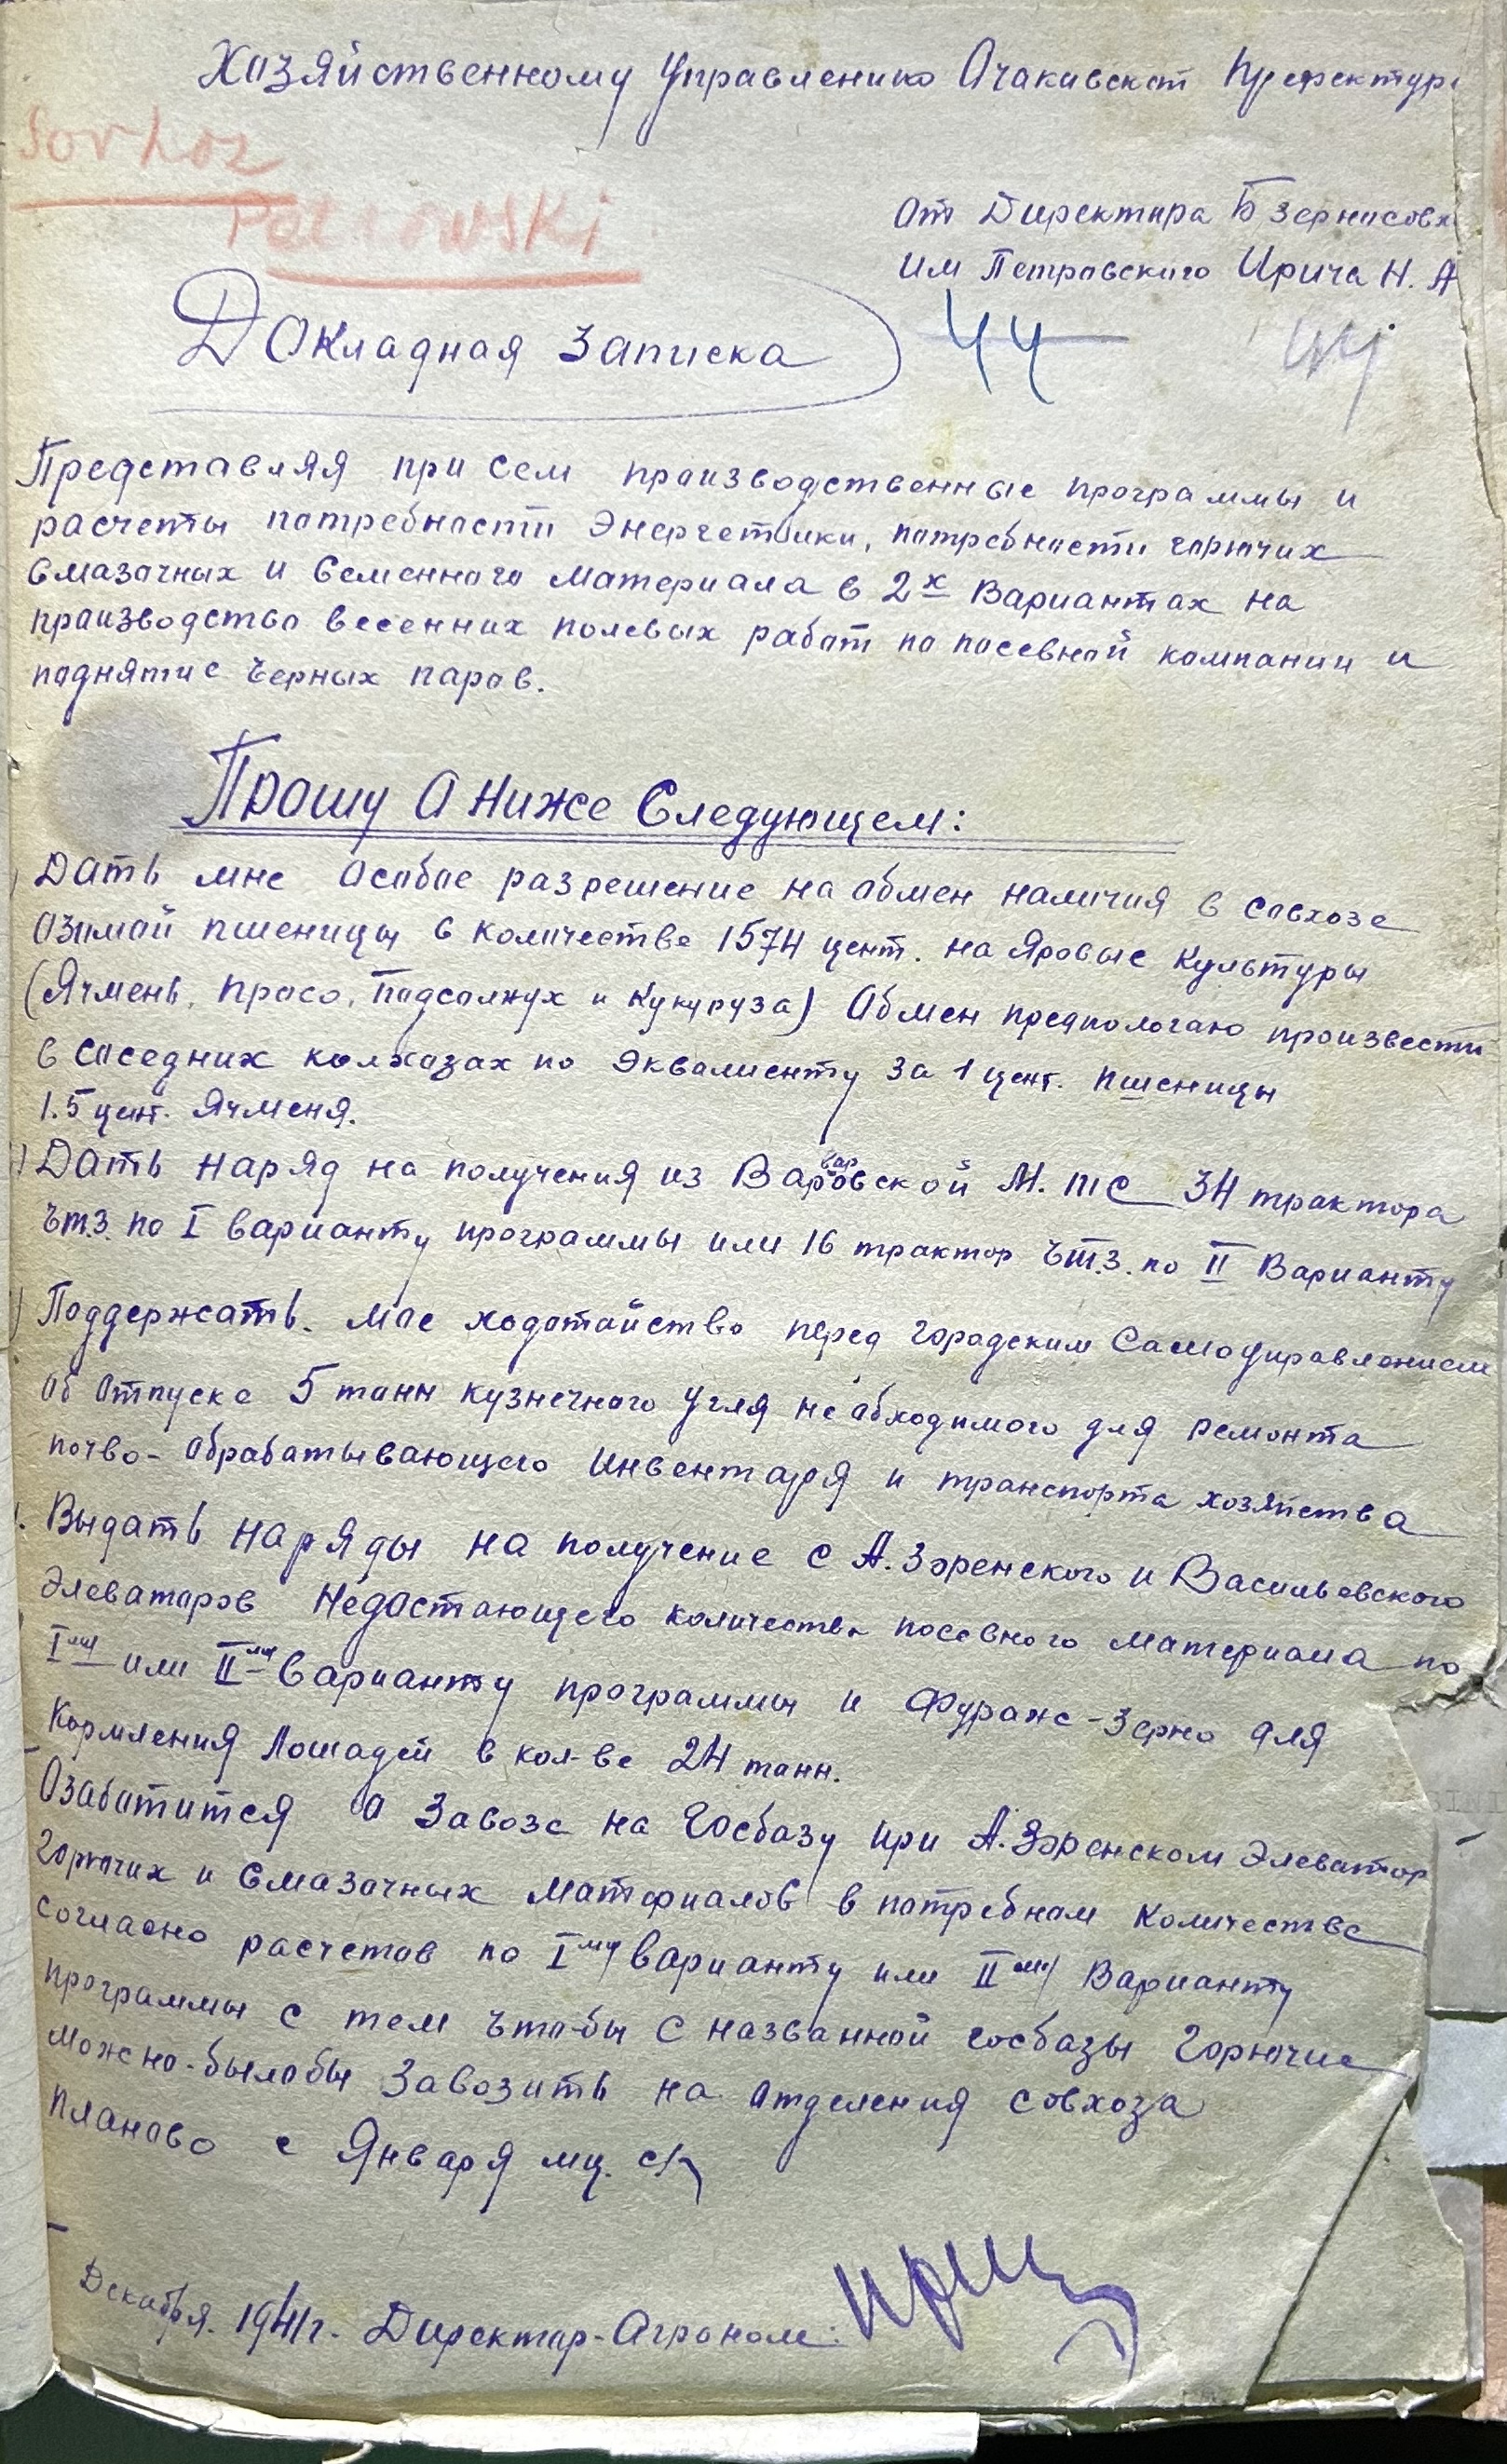 Хозяйственному Управлению Очаковской Префектуры
Sovhos
Petrowski
От Директора Б Зерносовх
им Петровского Ирича Н. А
Докладная Записка
44
Представляя при сем производственные программы и
расчеты потребности Энергетики, потребности горючих
смазочных и Семенного Материала в 2х Вариантах на
производство весенних полевых работ по посевной компании и
поднятие Черных паров.
Прошу О Ниже Следующем:
Дать мне Особое разрешение на обмен наличия в совхозе
Озимой пшеницы в количестве 1574 цент. на Яровые Культуры
(Ячмень, Просо, Подсолнух и Кукуруза) Обмен предпологаю произвести
в Соседних колхозах по Эквалиенту за 1 цент. пшеницы
1.5 цент. Ячменя.
) Дать наряд на получения из Варваровской М.Т.С 34 трактора
ЧТ.З. по I варианту программы или 16 трактор ЧТ.З. по II Варианту
) Поддержать. мое ходотайство перед городским Самоуправлением
об Отпуске 5 тонн кузнечного Угля необходимого для ремонта
почво-обрабатывающего Инвентаря и транспорта хозяйства
. Выдать Наряды на получение с А. Зоренского и Васильевского
Элеваторов Недостающего количества посевного материала по
Iму или IIму варианту программы и Фураж-Зерно для
Кормления Лошадей в кол-ве 24 тонн.
Озаботится О Завозе на Госбазу при А. Зоренском Элеватор
Горючих и Смазочных Материалов в потребном Количестве
Согласно расчетов по Iму варианту или IIму Варианту
программы с тем Чтобы с названной госбазы Горючие
можно-былобы Завозить на Отделения Совхоза
Планово с Января мц. с/г
Декабря. 1941г. Директор-Агроном: